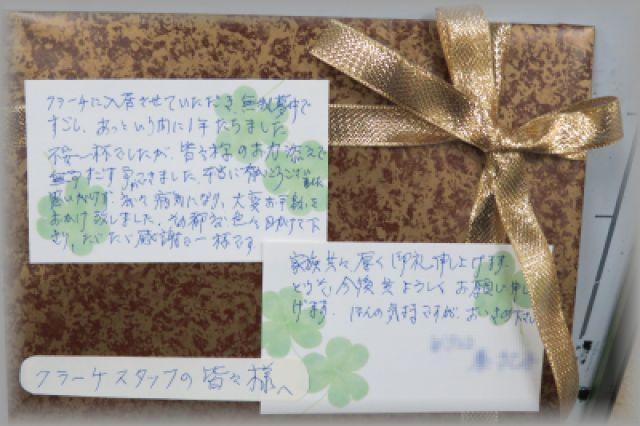 クラーチに入居させていただき無我夢中で
すごし、あっという間に1年たちました
不安一杯でしたが、皆々様のお力添えで
無事すごす事ができました、本当に有りがとうございました
思いがけず、私々病気になり、大変お手数を
おかけ致しました、その都度色々助けて下
さり、ただただ感謝で一杯です。
家族共々、厚く御礼申し上げます
どうぞ、今後共よろしくお願い申し
げます。ほんの気持ですが、おいさめ下さい
クラーケスタッフの皆々様へ